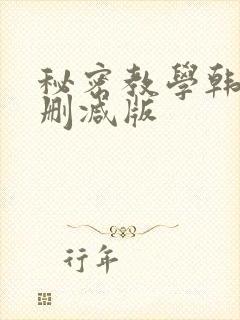 秘密教學韩
删减版
行年